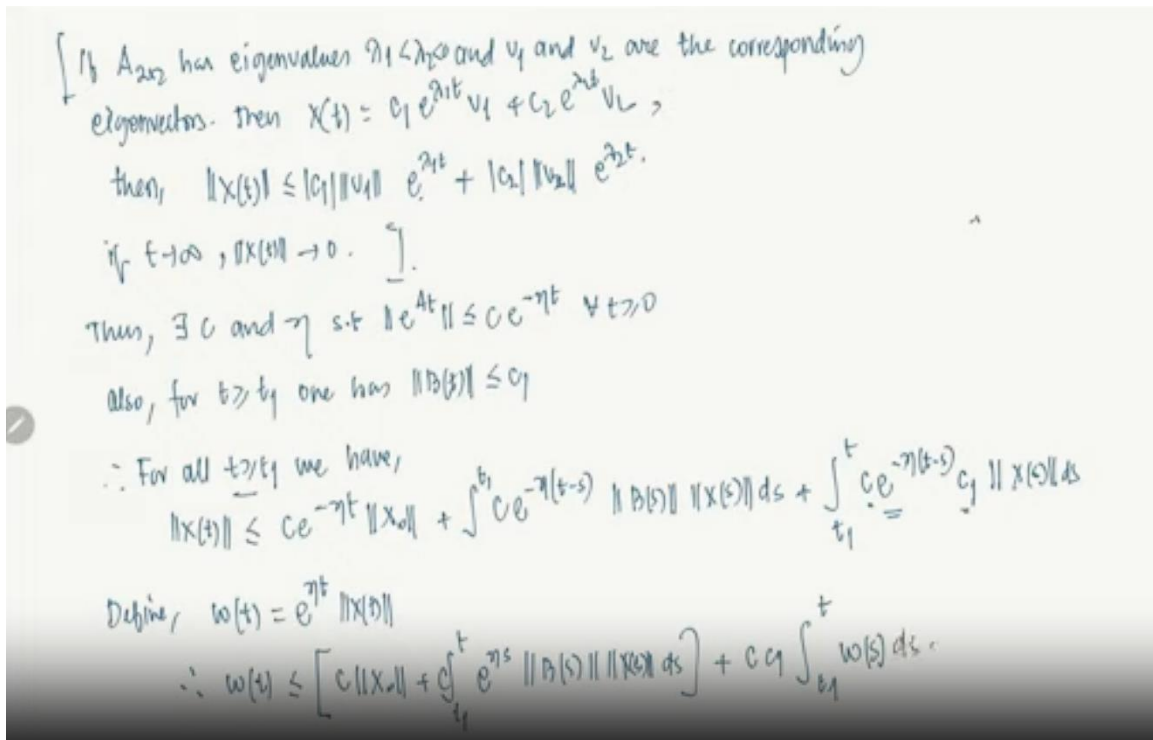 [If A₂ₓ₂ has eigenvalues λ₁<λ₂<0 and v₁ and v₂ are the corresponding
eigenvectors. Then X(t) = c₁ e^{λ₁t} v₁ + c₂ e^{λ₂t} v₂ ,
then, ||X(t)|| ≤ |c₁| ||v₁|| e^{λ₁t} + |c₂| ||v₂|| e^{λ₂t}.
if t→∞ , ||X(t)|| → 0. ].
Thus, ∃ C and η s.t ||e^{At}|| ≤ Ce^{-ηt} ∀ t≥0
also, for t≥t₁ one has ||B(t)|| ≤ c₁
∴ For all t≥t₁ we have,
||X(t)|| ≤ Ce^{-ηt} ||X₀|| + ∫^{t₁} Ce^{-η(t-s)} ||B(s)|| ||X(s)|| ds + ∫_{t₁}^{t} Ce^{-η(t-s)} c₁ ||X(s)|| ds
Define, w(t) = e^{ηt} ||X(t)||
∴ w(t) ≤ [C||X₀|| + C∫_{t₁}^{t} e^{ηs} ||B(s)|| ||X(s)|| ds] + C c₁ ∫_{t₁}^{t} w(s) ds.